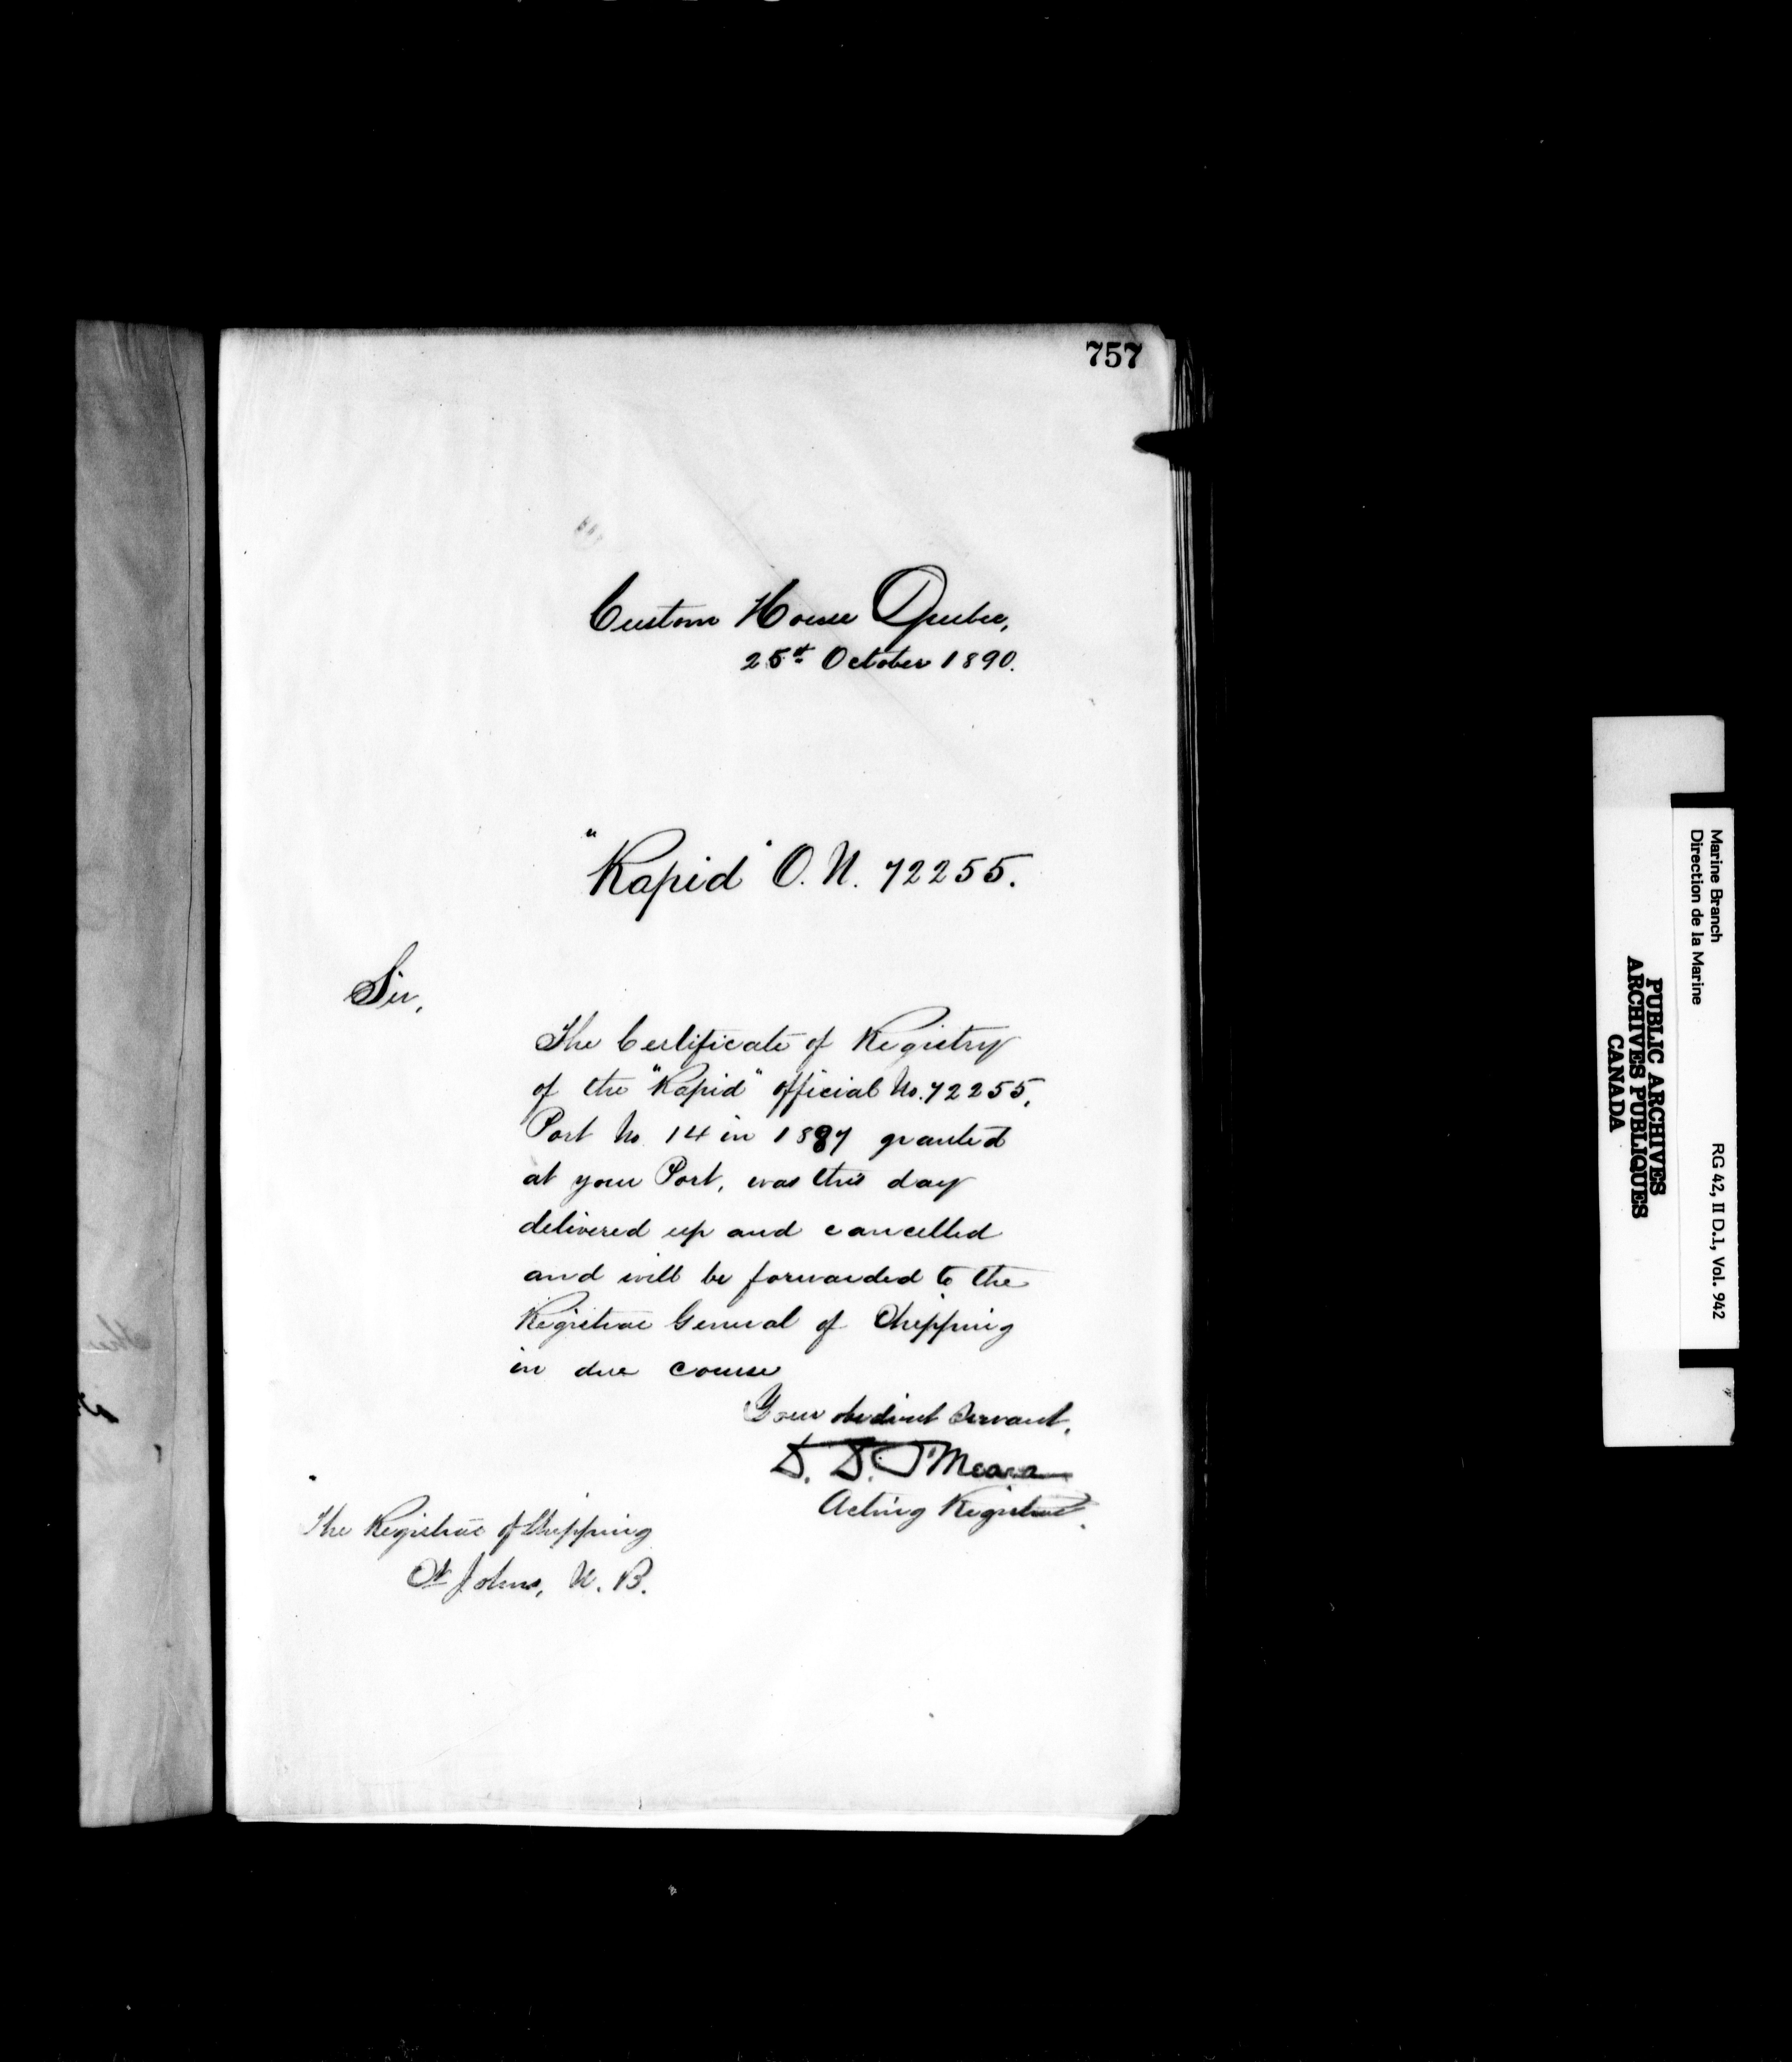 757
Custom House Quebec,
25th October 1890.
"Rapid" O. N. 72255.
Sir,
The Certificate of Registry
of the "Rapid" official No. 72255,
Port No. 14 in 1887 granted
at your Port, was this day
delivered up and cancelled
and will be forwarded to the
Registrar General of Shipping
in due course
Your obedient Servant,
D. D. O'Meara
Acting Registrar.
The Registrar of Shipping
St Johns, N. B.
Marine Branch
Direction de la Marine
RG 42, II D.1, Vol. 942
PUBLIC ARCHIVES
ARCHIVES PUBLIQUES
CANADA